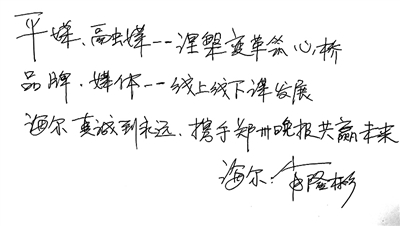 平媒、融媒--涅槃变革筑心桥
品牌、媒体--线上线下谋发展
海尔真诚到永远、携手郑州晚报共赢未来
海尔:隆彬